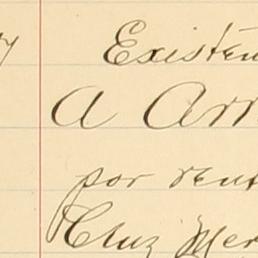 Existen
A Arr
por rent
Cruz Mer